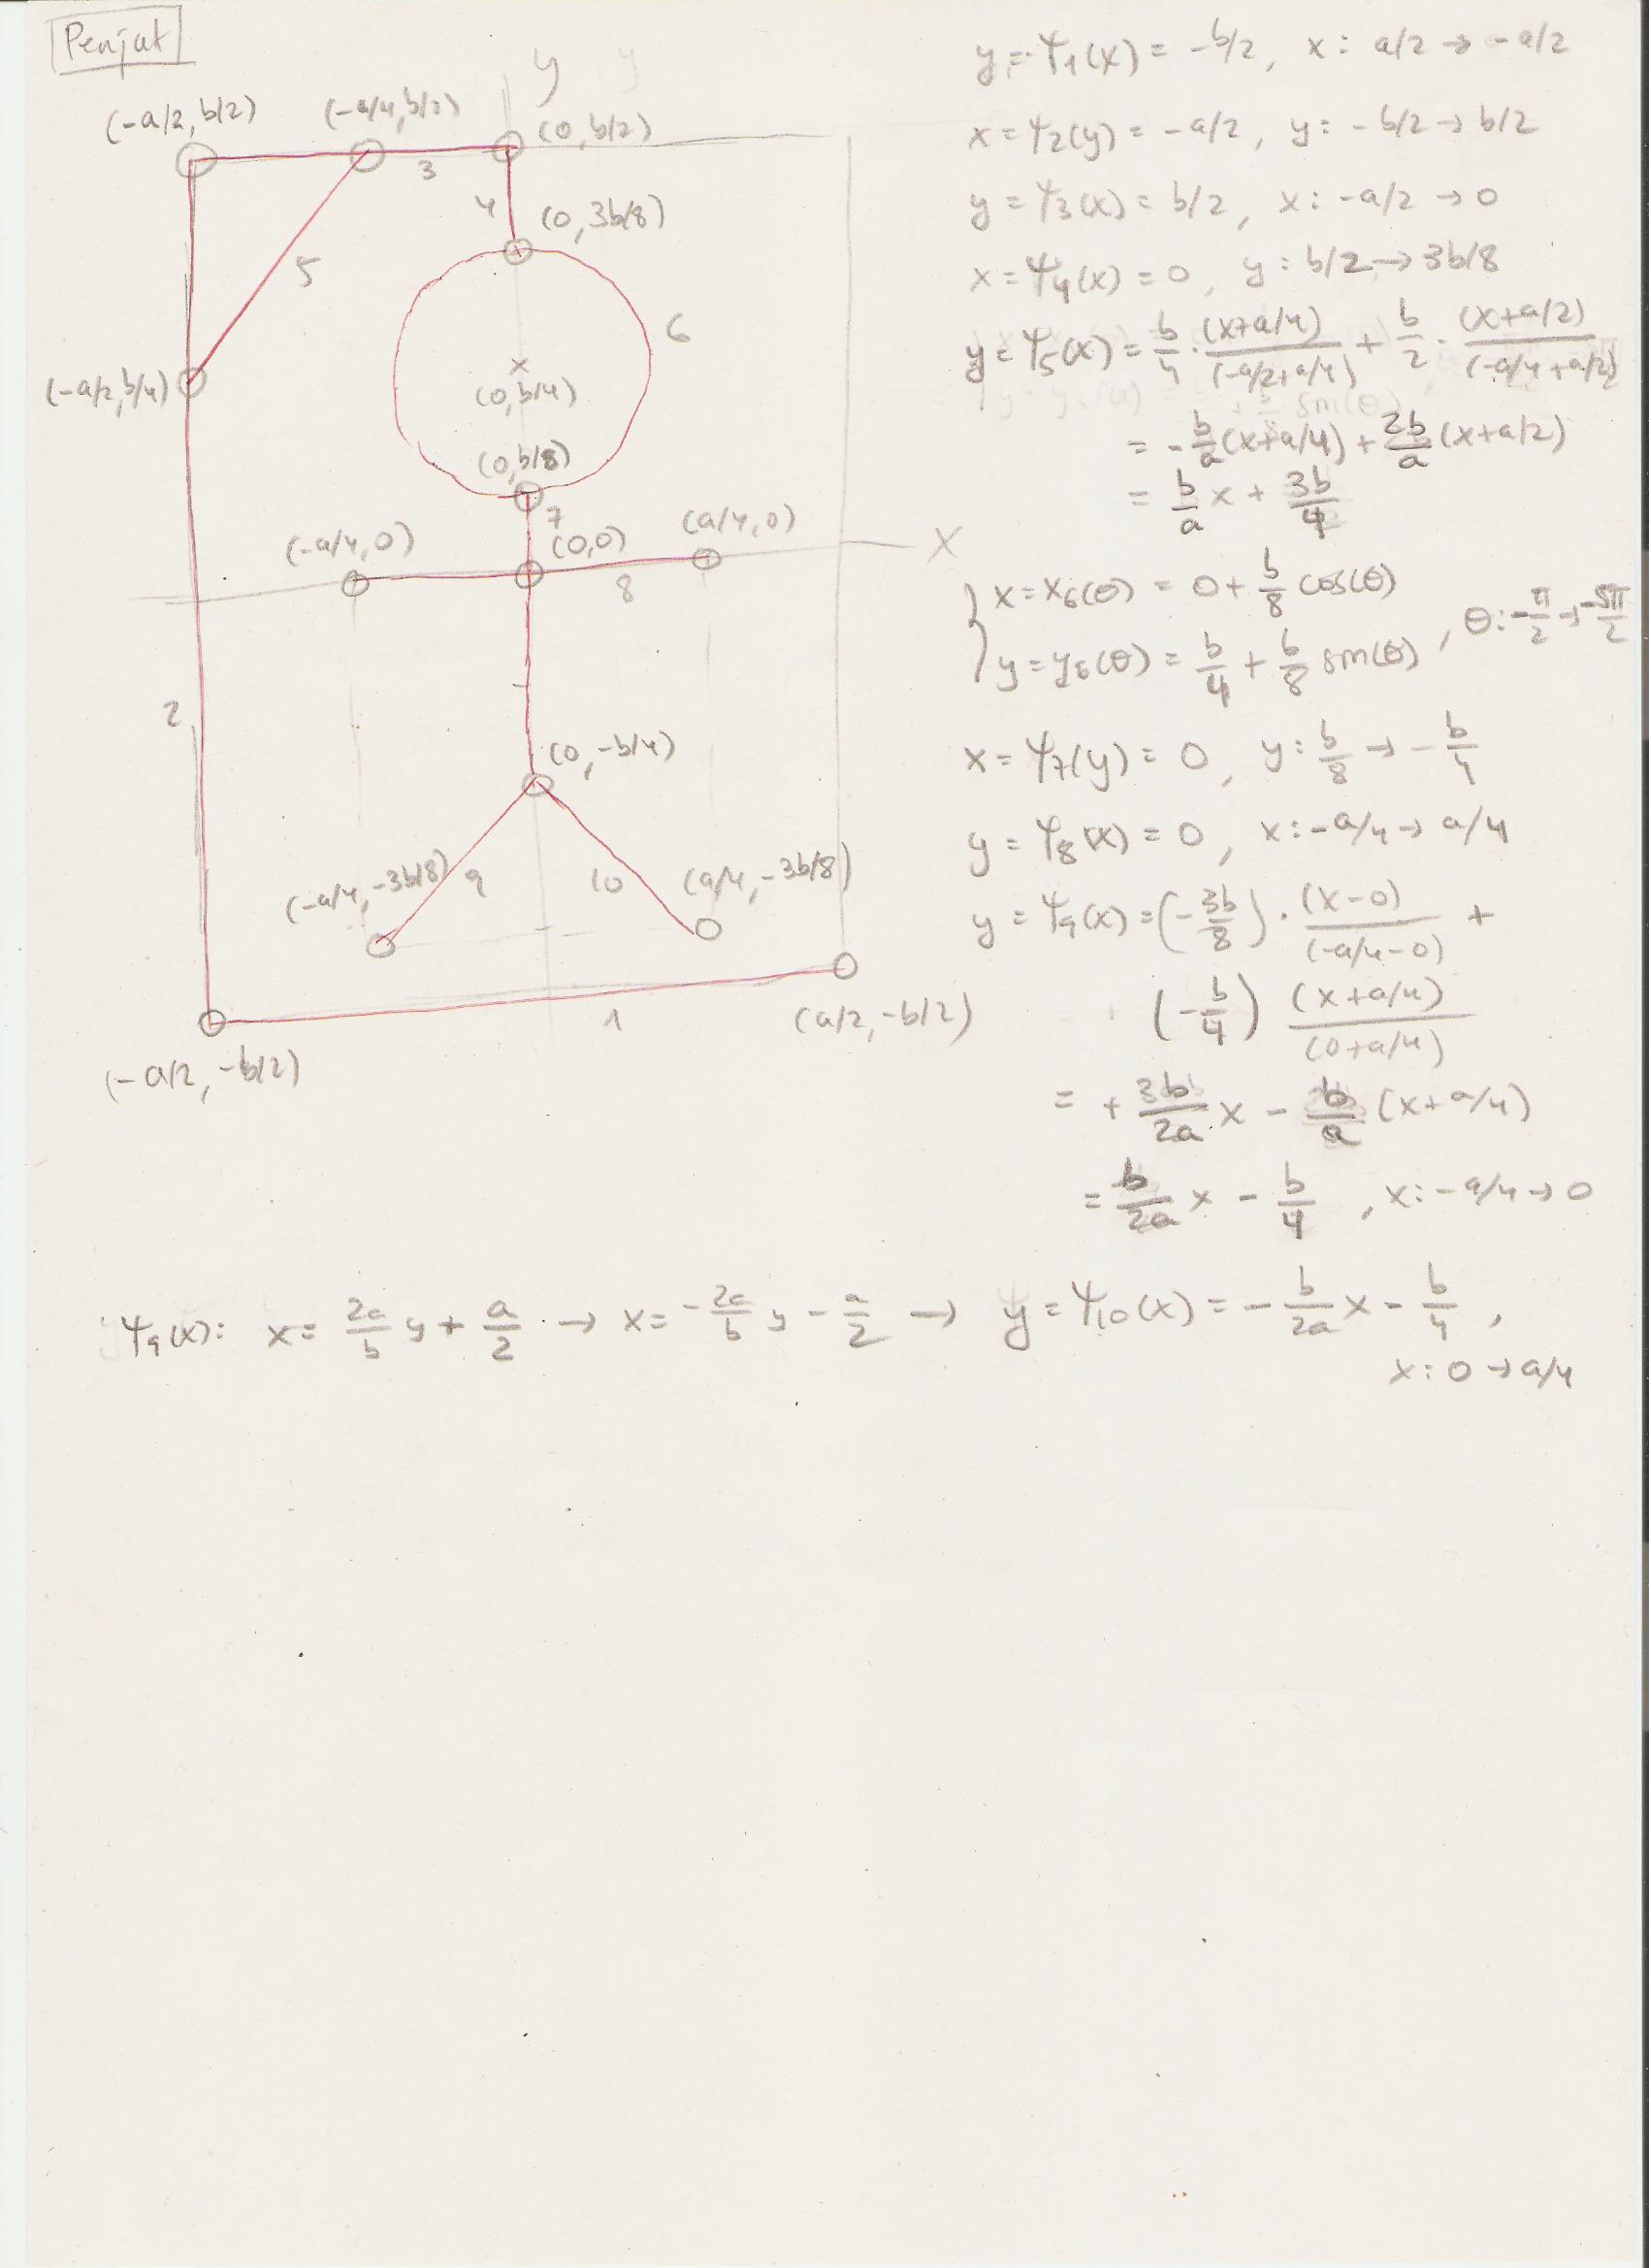 Penjat
y
(-a/2, b/2)
(-a/4, b/2)
(0, b/2)
3
4
(0, 3b/8)
5
6
(-a/2, b/4)
x
(0, b/4)
(0, b/8)
7
(-a/4, 0)
(0,0)
(a/4, 0)
X
8
2
(0, -b/4)
(-a/4, -3b/8)
9
10
(a/4, -3b/8)
1
(a/2, -b/2)
(-a/2, -b/2)
y = Ψ1(x) = -b/2, x: a/2 → -a/2
x = Ψ2(y) = -a/2, y: -b/2 → b/2
y = Ψ3(x) = b/2, x: -a/2 → 0
x = Ψ4(x) = 0, y: b/2 → 3b/8
y = Ψ5(x) = b/4 · (x+a/4)/(-a/2+a/4) + b/2 · (x+a/2)/(-a/4+a/2)
= -b/a (x+a/4) + 2b/a (x+a/2)
= b/a x + 3b/4
x = x6(θ) = 0 + b/8 cos(θ)
y = y6(θ) = b/4 + b/8 sin(θ), θ: -π/2 → -5π/2
x = Ψ7(y) = 0, y: b/8 → -b/4
y = Ψ8(x) = 0, x: -a/4 → a/4
y = Ψ9(x) = (-3b/8) · (x-0)/(-a/4-0) +
(-b/4) (x+a/4)/(0+a/4)
= + 3b/2a x - b/a (x+a/4)
= b/2a x - b/4, x: -a/4 → 0
Ψ9(x): x = 2a/b y + a/2 → x = -2a/b y - a/2 → y = Ψ10(x) = -b/2a x - b/4,
x: 0 → a/4